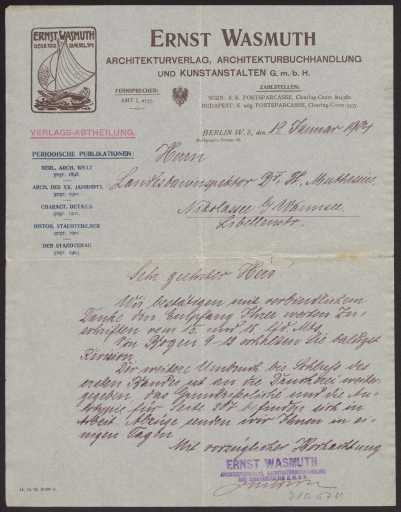 ERNST WASMUTH
ERNST WASMUTH
ARCHITEKTURVERLAG, ARCHITEKTURBUCHHANDLUNG
UND KUNSTANSTALTEN G. m. b. H.
FERNSPRECHER:
AMT I,
ZAHLSTELLEN:
WIEN: K. K. POSTSPARCASSE, Clearing-Conto
BUDAPEST: K. ung. POSTSPARCASSE, Clearing-Conto
VERLAGS-ABTHEILUNG.
BERLIN W. 8, den 19. Januar 1904
PERIODISCHE PUBLIKATIONEN:
BERL. ARCH. WELT
gegr. 1898.
ARCH. DES XX. JAHRHDTS.
gegr. 1901.
CHARACT. DETAILS
gegr.
HISTOR. STAEDTEBILDER
gegr. 1901.
DER STAEDTEBAU
gegr.
Herrn
Landesbauinspektor Dr. H. Muthesius
Nikolassee b/Wannsee
Libellenstr.
Sehr geehrter Herr!
Wir bestätigen mit verbindlichem
Danke den Empfang Ihrer werten Zu-
schriften vom 15. und 18. lfd. Mts.
Von Bogen 9-12 erhielten Sie
Revision.
Der weitere Umbruch bis Schluss des
ersten Bandes ist an die Druckerei weiter-
gegeben, das und die Au-
totypie für Seite befinden sich in
Arbeit. Abzüge senden wir Ihnen in ei-
nigen Tagen.
Mit vorzüglicher Hochachtung
ERNST WASMUTH
ARCHITEKTURVERLAG, ARCHITEKTURBUCHHANDLUNG
UND KUNSTANSTALTEN G.M.B.H.